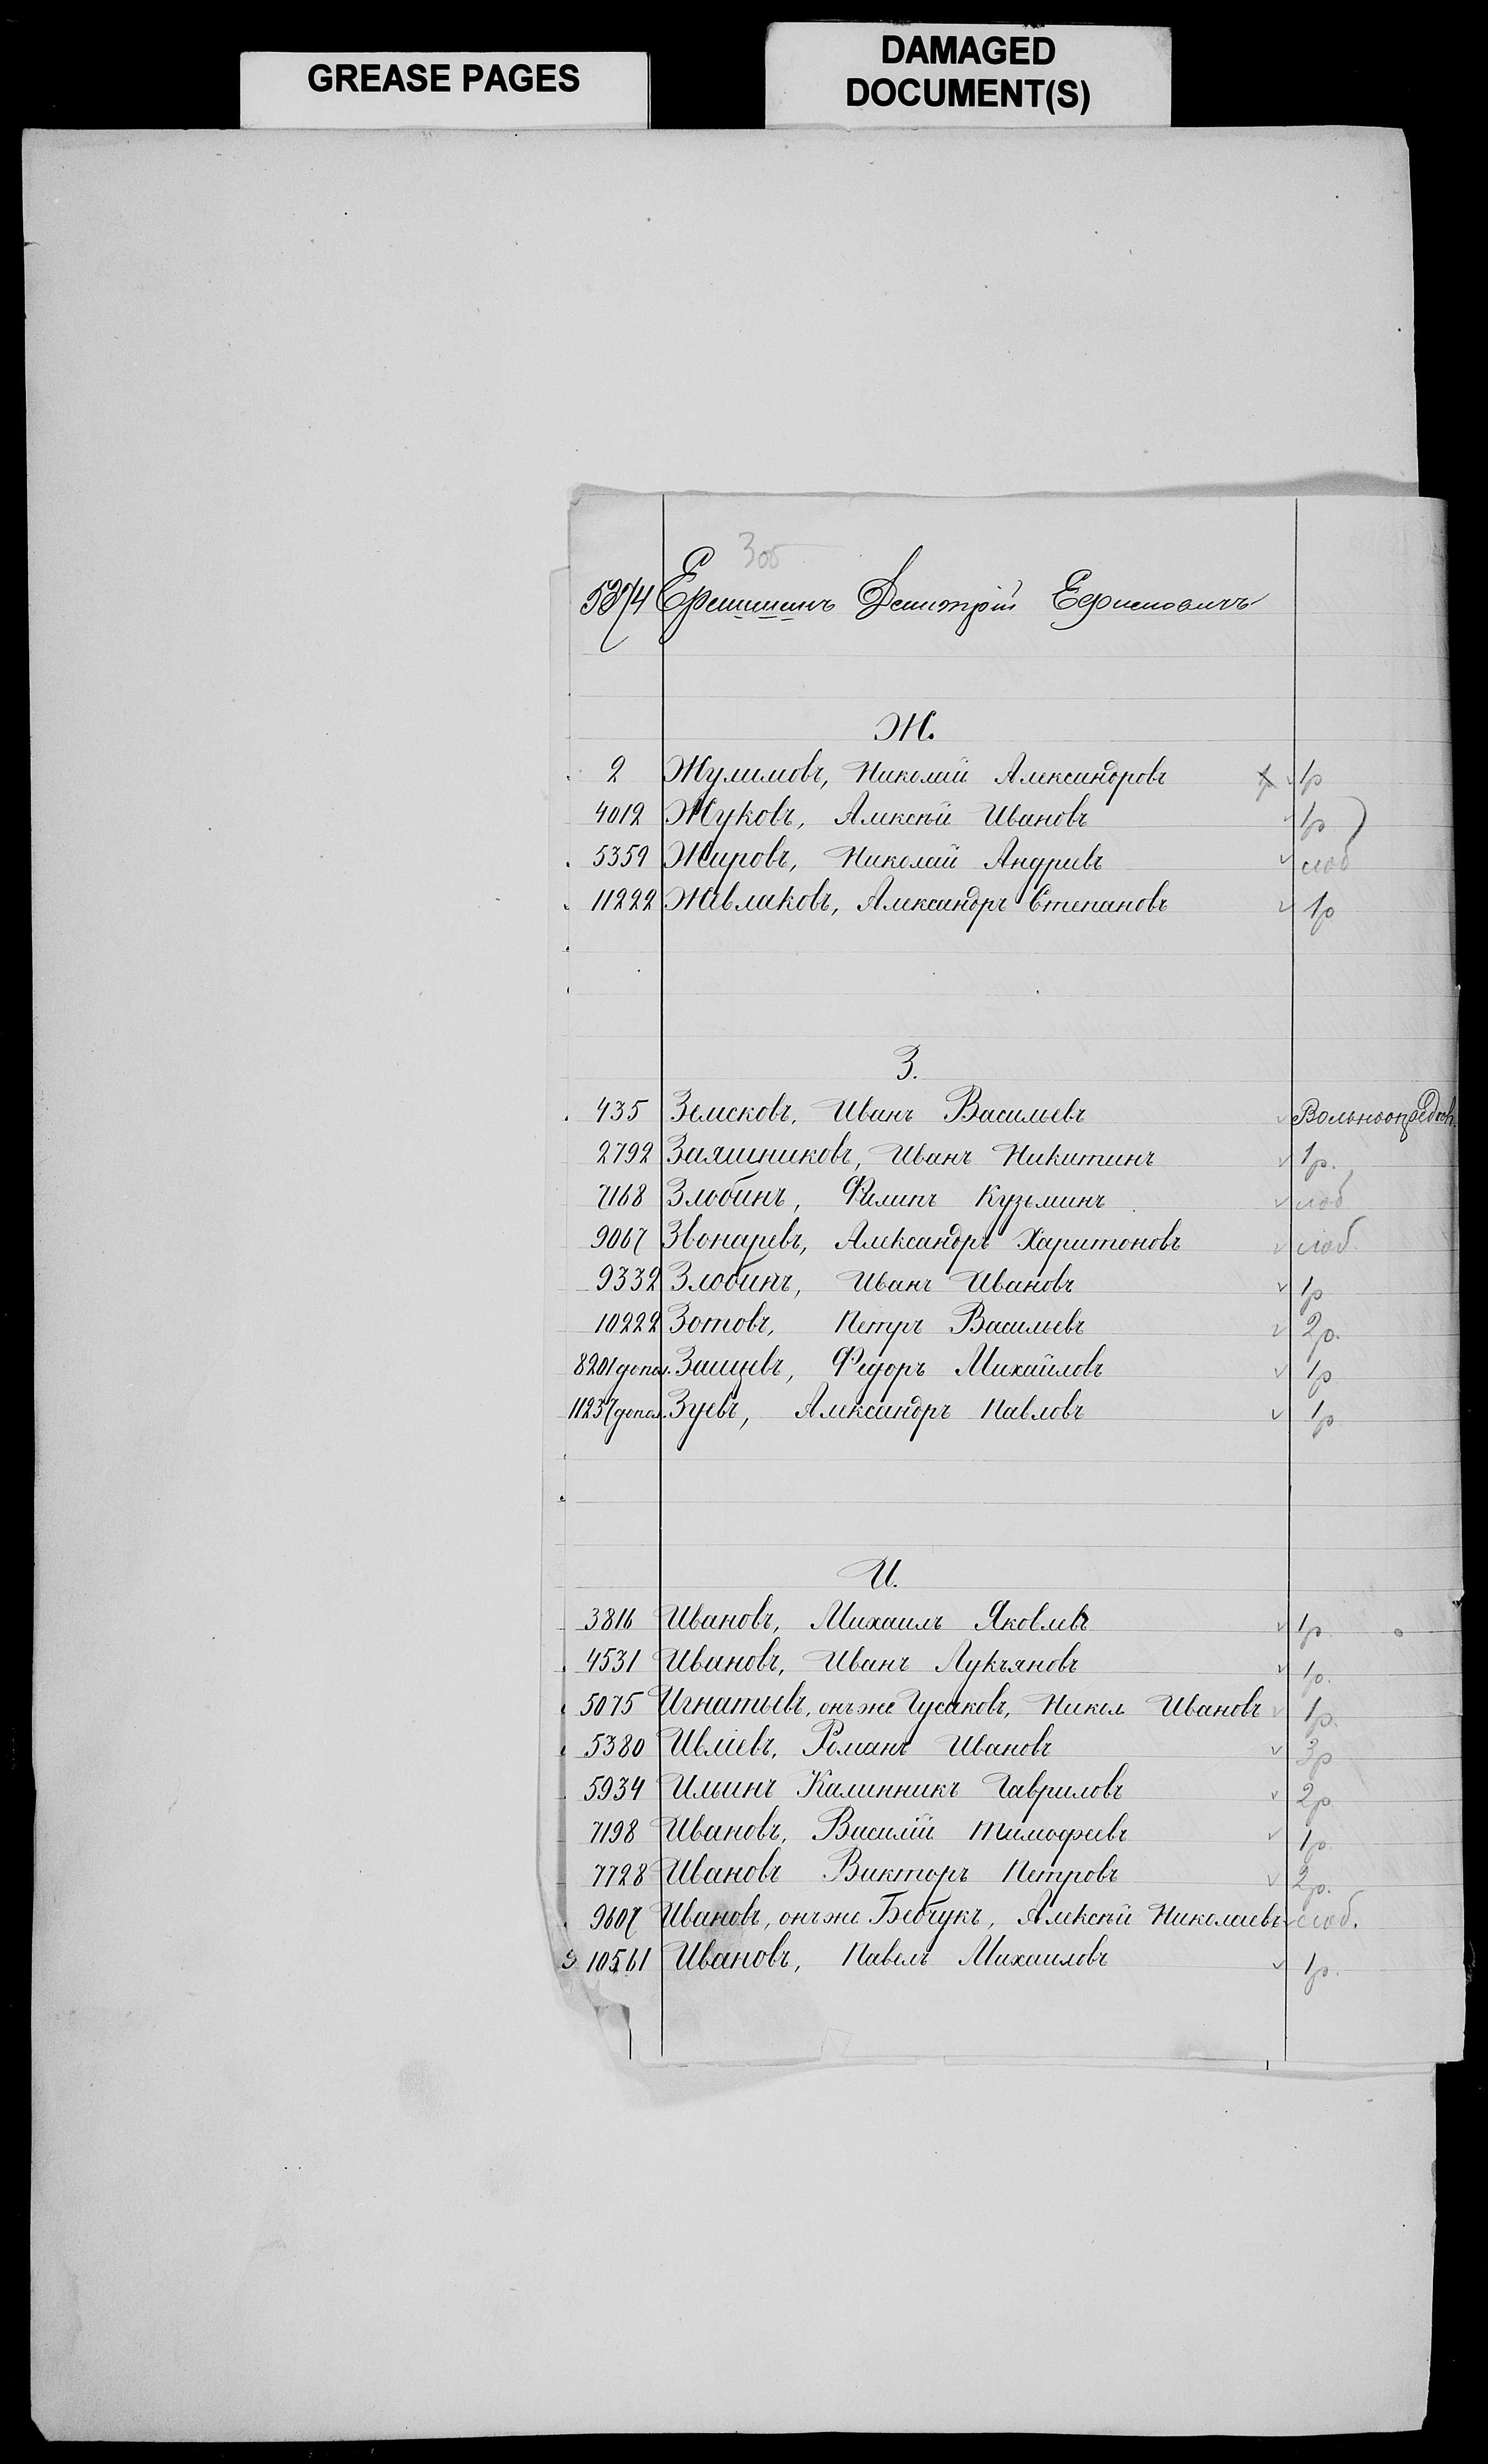 GREASE PAGES
DAMAGED
DOCUMENT(S)
Дмитрій Ефимовичъ
Ж.
2 Жулимовъ, Николай Александровъ 1р
4012 Жуковъ, Алексѣй Ивановъ 1р
5359 Жировъ, Николай Андреевъ слаб
11222 Жевлаковъ, Александръ Степановъ 1р
З.
435 Земсковъ, Иванъ Васильевъ
2792 Иванъ Никитинъ 1р.
7168 Злобинъ, Филипъ Кузьминъ слаб
9067 Звонаревъ, Александръ Харитоновъ слаб.
9332 Злобинъ, Иванъ Ивановъ 1р
10222 Зотовъ, Петръ Васильевъ 2р.
8201 допол. Заицевъ, Федоръ Михайловъ 1р
11237 допол. Зуевъ, Александръ Павловъ 1р
И.
3816 Ивановъ, Михаилъ Яковлевъ 1р.
4531 Ивановъ, Иванъ Лукъяновъ 1р.
5075 Игнатьевъ, онъ же Гусаковъ, Никол. Ивановъ 1р.
5380 Ивлiевъ, Романъ Ивановъ 3р
5934 Ильинъ Калинникъ Гавриловъ 2р
7198 Ивановъ, Василій Тимофеевъ 1р.
7728 Ивановъ Викторъ Петровъ 2р.
9607 Ивановъ, онъ же Бебчукъ, Алексѣй Николаевъ слаб.
10561 Ивановъ, Павелъ Михаиловъ 1р.